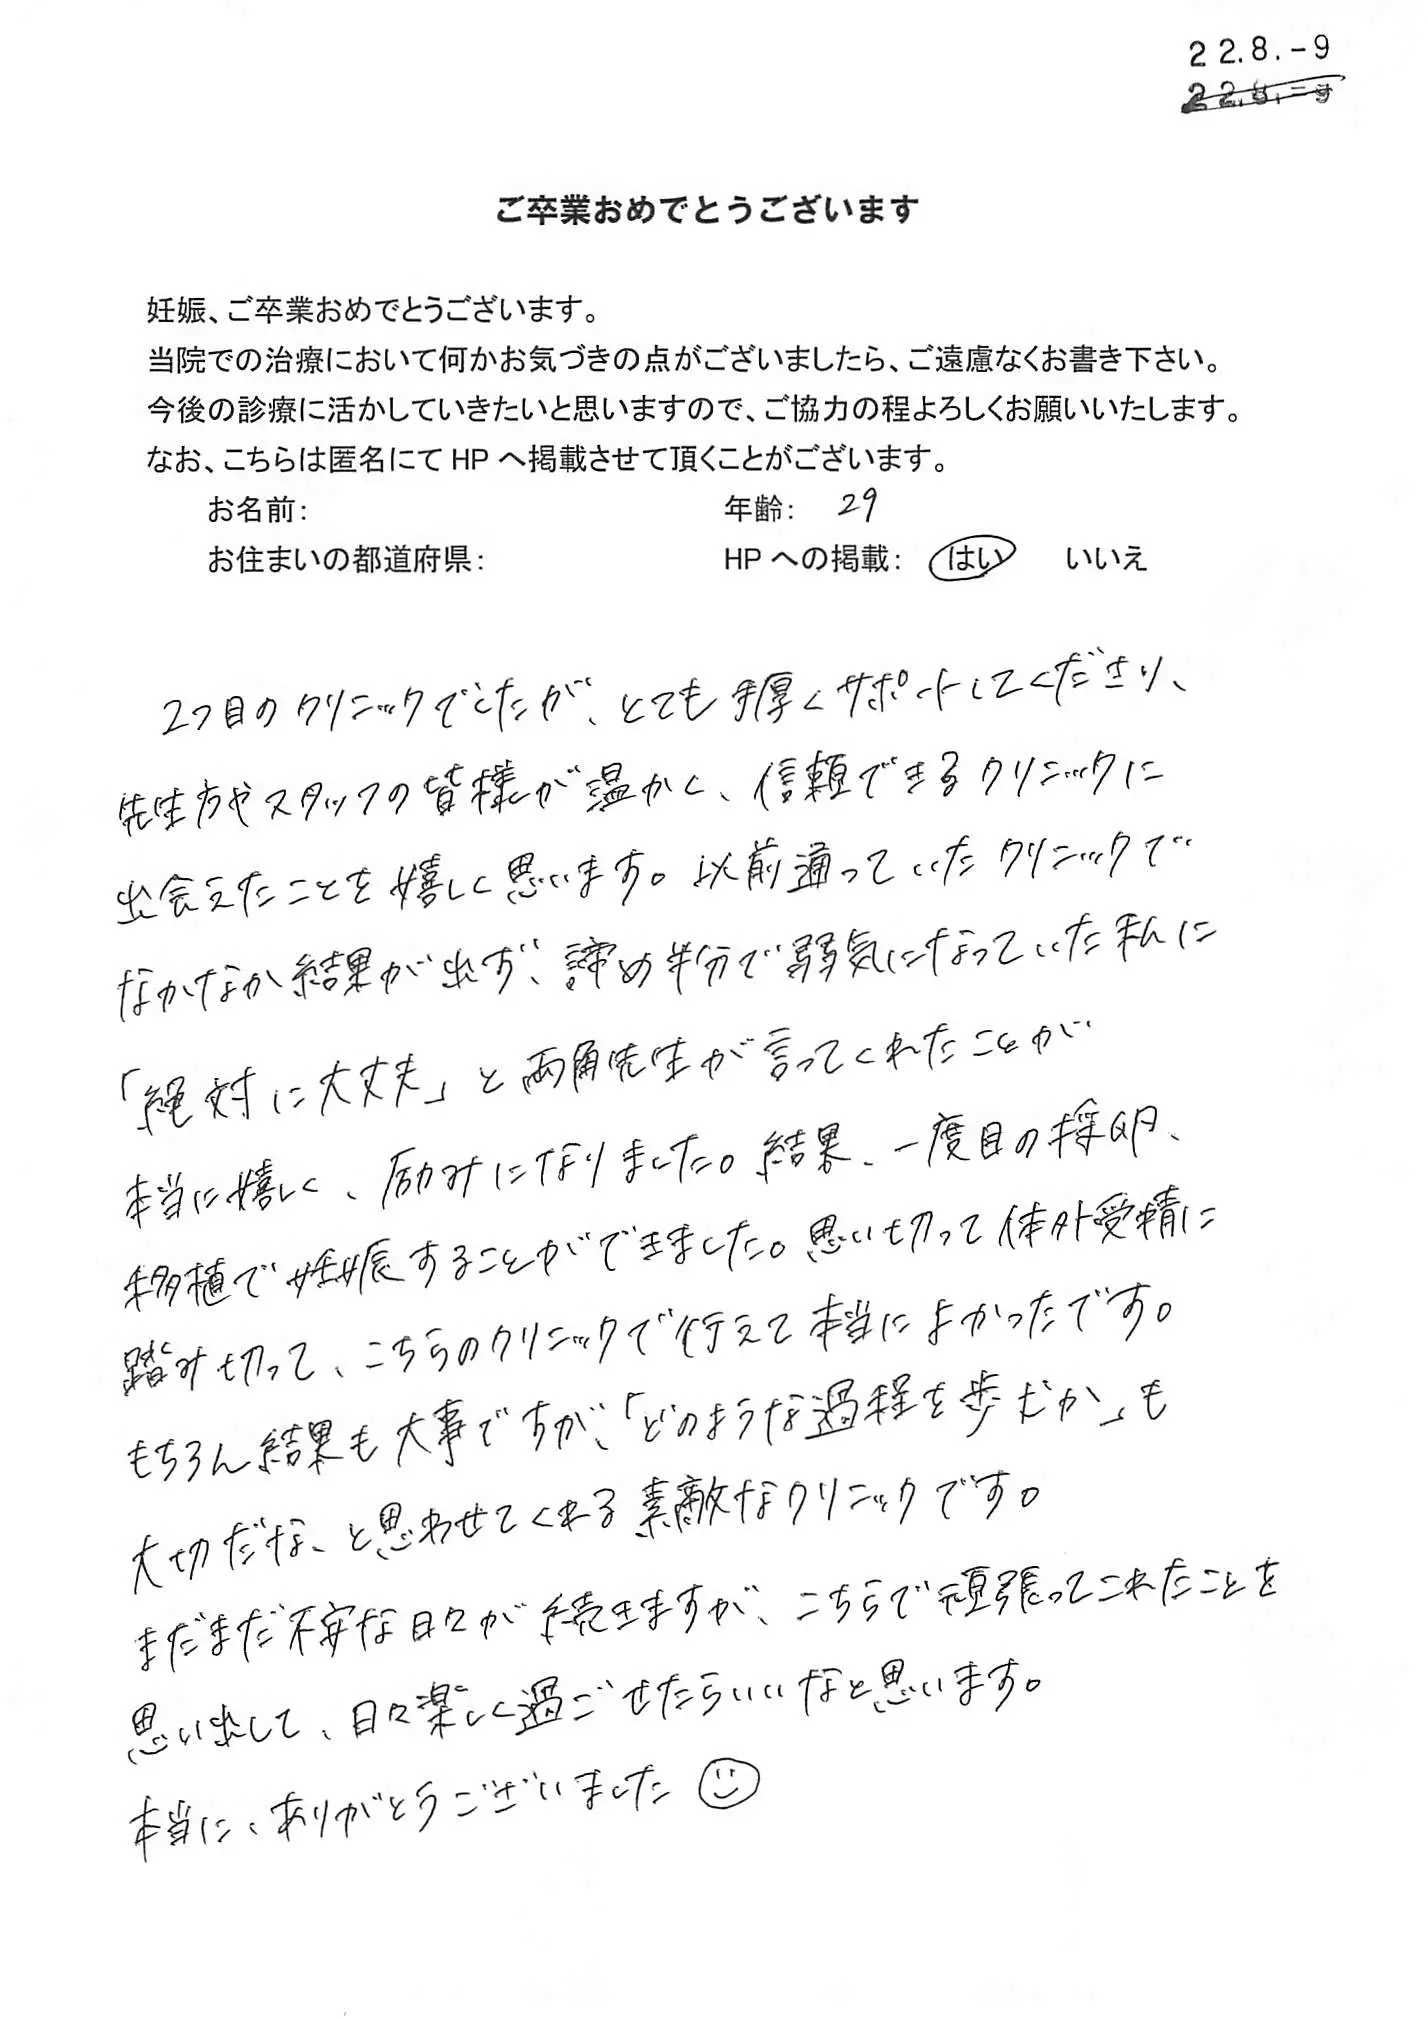 22.8.-9
ご卒業おめでとうございます
妊娠、ご卒業おめでとうございます。
当院での治療において何かお気づきの点がございましたら、ご遠慮なくお書き下さい。
今後の診療に活かしていきたいと思いますので、ご協力の程よろしくお願いいたします。
なお、こちらは匿名にて HP へ掲載させて頂くことがございます。
お名前: 年齢: 29
お住まいの都道府県: HP への掲載: はい いいえ
2つ目のクリニックでしたが、とても手厚くサポートしてくださり、
先生方やスタッフの皆様が温かく、信頼できるクリニックに
出会えたことを嬉しく思います。以前通っていたクリニックで
なかなか結果が出ず、諦め半分で弱気になっていた私に
「絶対に大丈夫」と両角先生が言ってくれたことが
本当に嬉しく、励みになりました。結果、一度目の採卵、
移植で妊娠することができました。思い切って体外受精に
踏み切って、こちらのクリニックで行えて本当によかったです。
もちろん結果も大事ですが、「どのような過程を歩むか」も
大切だな、と思わせてくれる素敵なクリニックです。
まだまだ不安な日々が続きますが、こちらで頑張ってこれたことを
思い出して、日々楽しく過ごせたらいいなと思います。
本当に、ありがとうございました